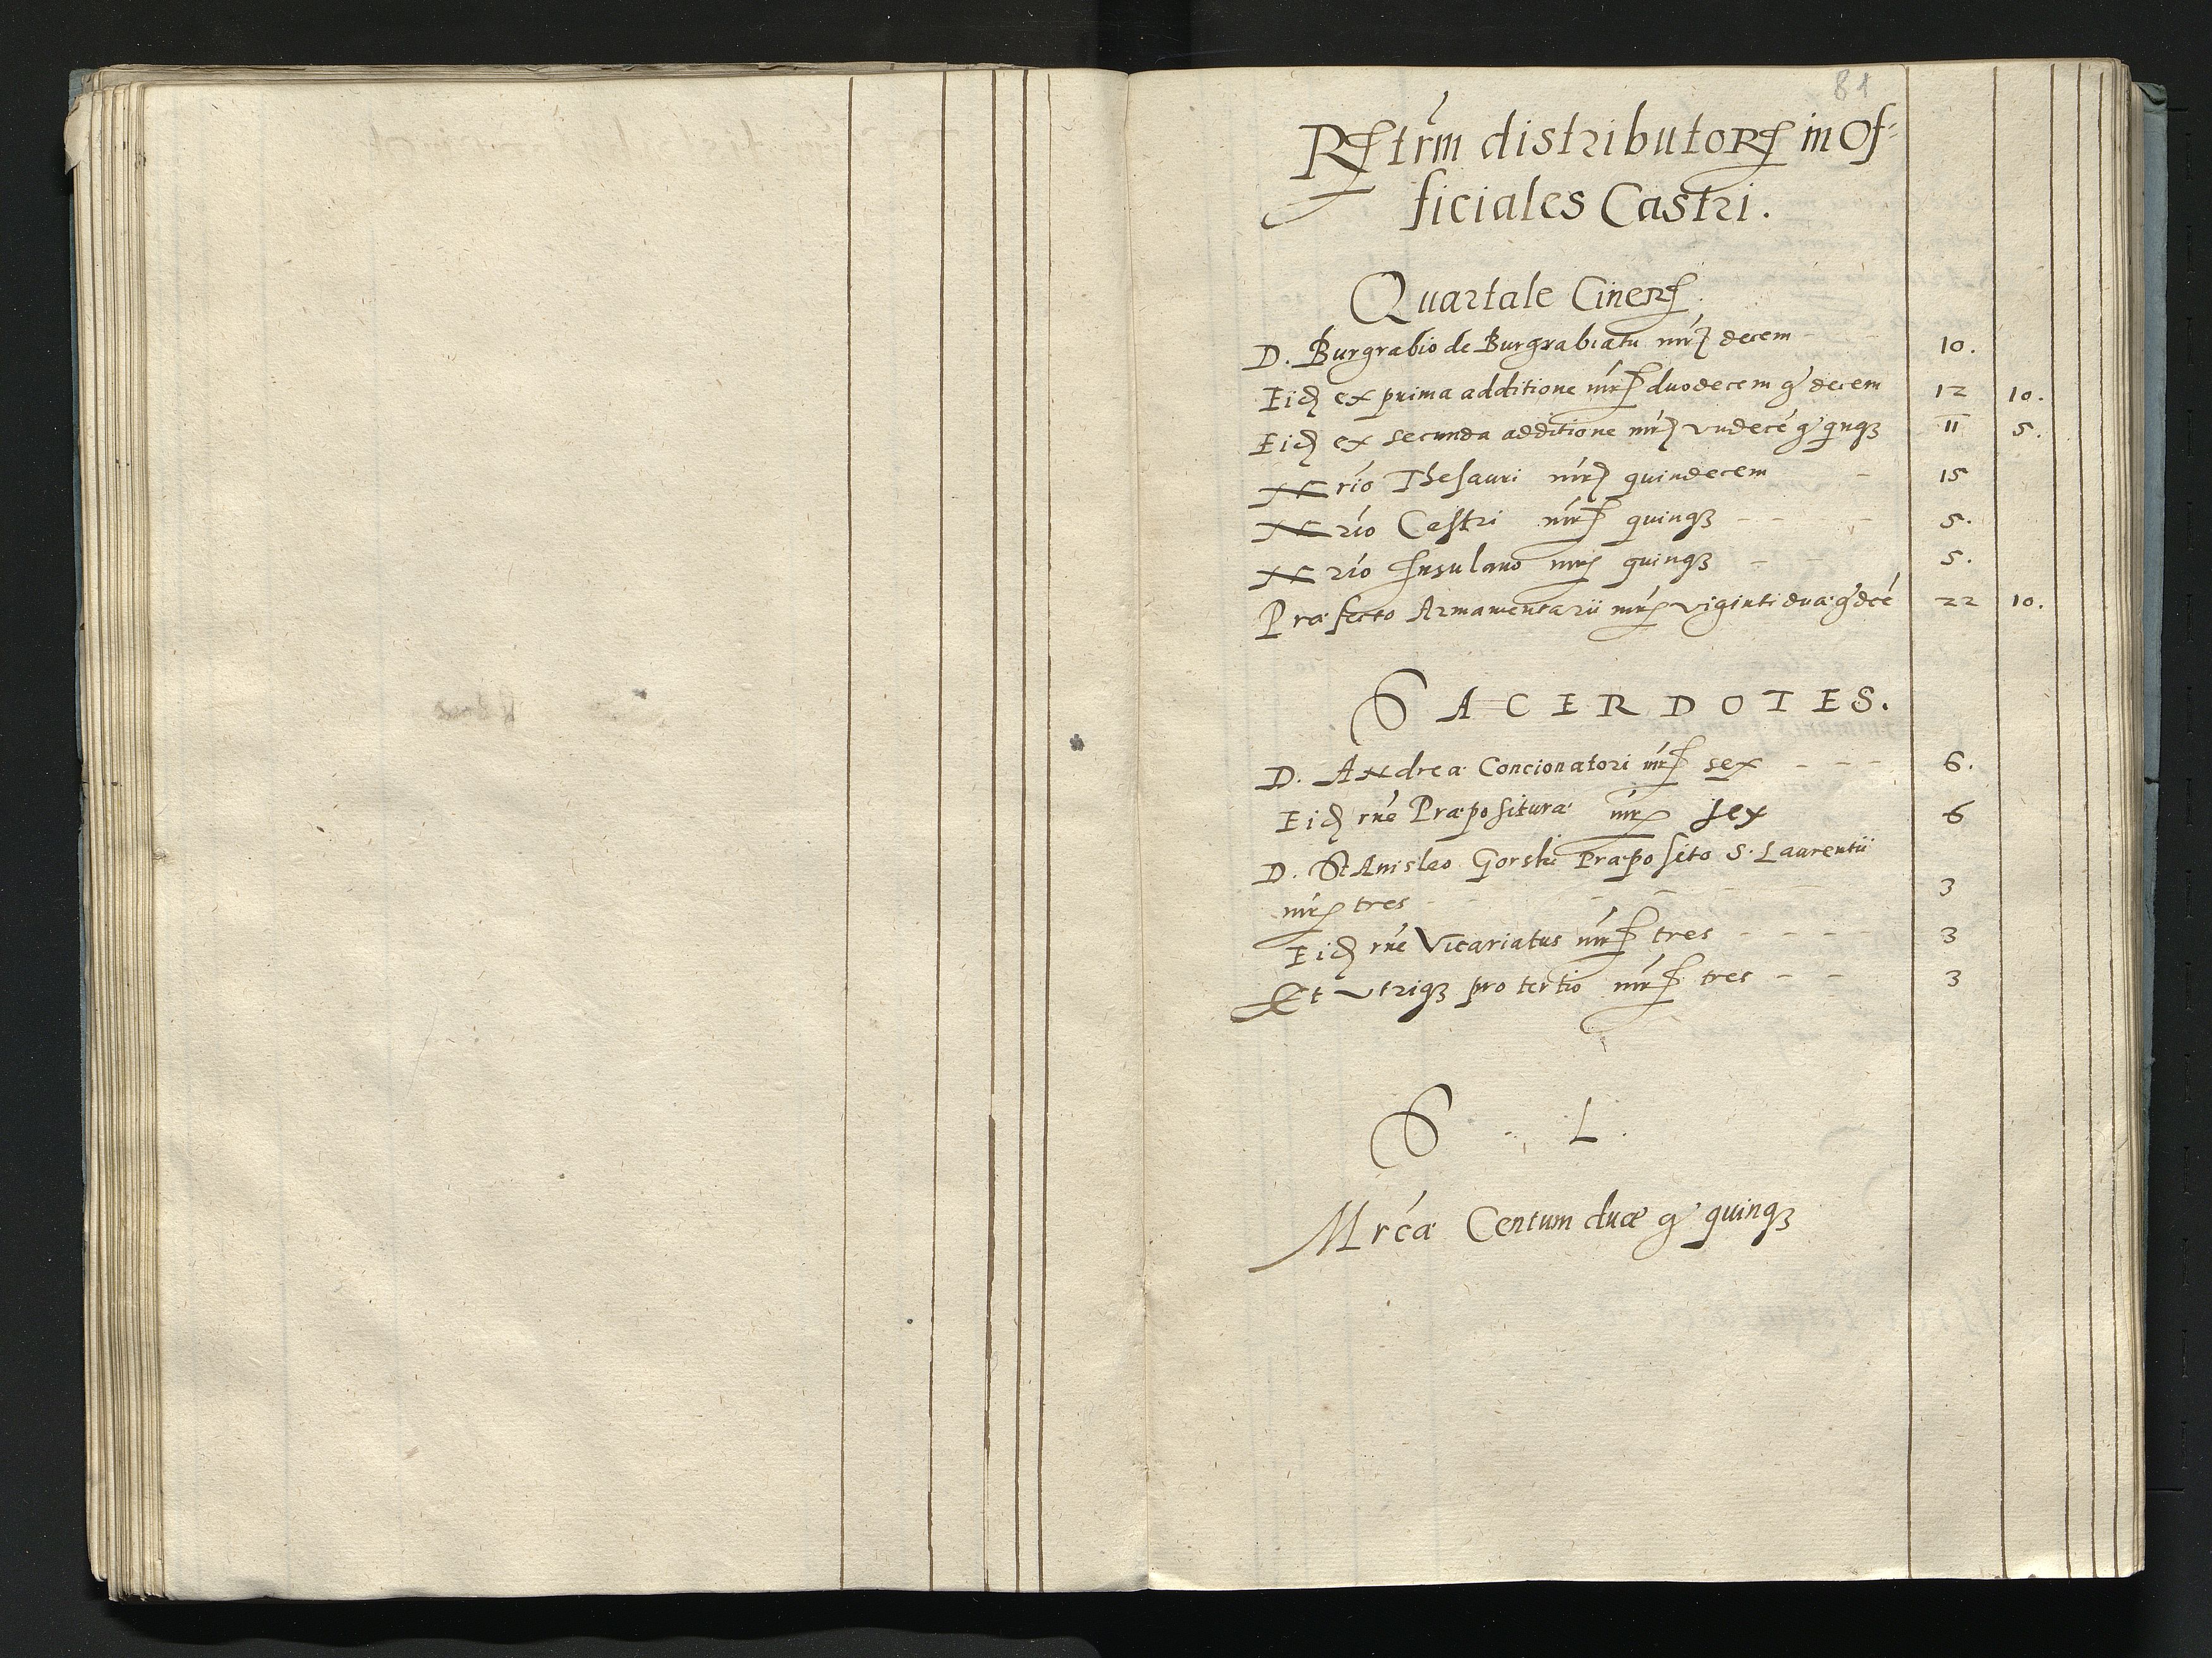 81
Rꝭtrm̃ distributoRꝭ in Of=
ficiales Castri.
Quartale Cinerꝭ.
D. Burgrabio de Burgrabiatu mrꝭ decem 10.
Eidꝭ ex prima additione mrꝭ duodecem gꝰ decem 12 10.
Eidꝭ ex secunda additione mrꝭ vndecé gꝰ qnqꝫ 11 5.
NNrio Thesauri mrꝭ quindecem - 15
NNrio Castri mrꝭ quinqꝫ - - - - 5.
NNrio Insulano mrꝭ quinqꝫ - - 5.
Præfecto Armamentarii mrꝭ viginti duæ gꝰ decé 22 10.
SACERDOTES.
D. ANdreæ Concionatori mrꝭ sex - - - 6.
Eidꝭ rné Præposituræ mrꝭ sex 6
D. StAnislao Gorski Præposito S. Laurentii
mrꝭ tres - - - - 3
Eidꝭ rné Vicariatus mrꝭ tres - - - - 3
Et vtriqꝫ pro tertio mrꝭ tres - - 3
S . L .
Mrcæ Centum duæ gꝰ quinqꝫ